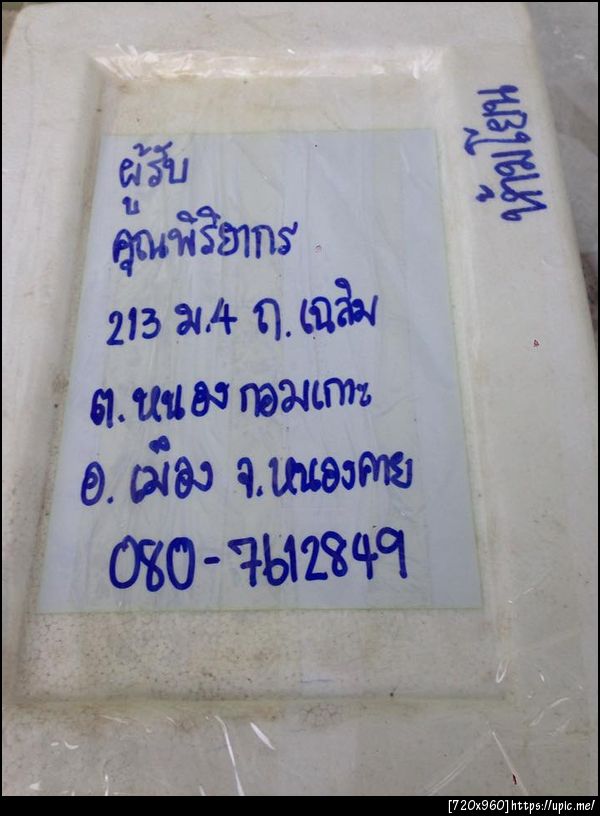 ผู้รับ
คุณพิริยากร
213 ม.4 ถ.เฉลิม
ต.หนองกอมเกาะ
อ.เมือง จ.หนองคาย
080-7612849
[720x960]https://upic.me/